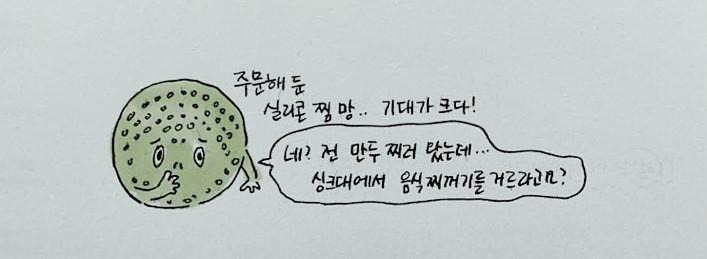 주문해 둔
실리콘 찜망.. 기대가 크다!
네? 전 만두 찌러 왔는데...
싱크대에서 음식찌꺼기를 거르라고요?